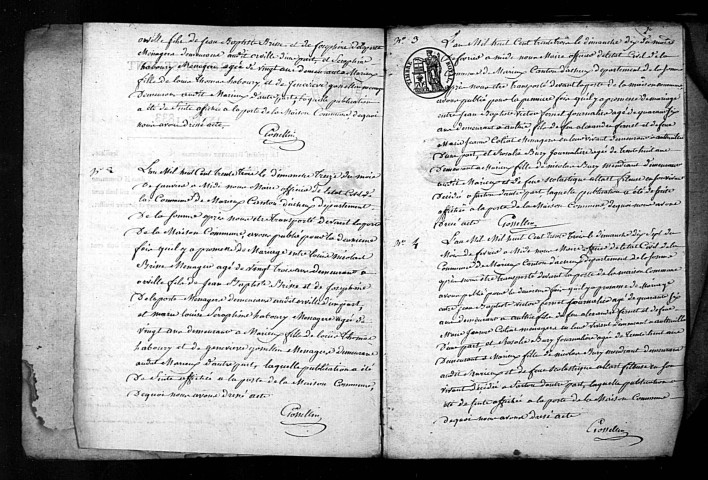 orville fils de Jean Baptiste Brisse et de Josephine Delaporte
Menagers demeurans audit orville d'une part, et Seraphine
haboury Menagere agée de vingt ans demeurant a Marieux
fille de Louis thomas haboury et de
demeurans audit Marieux d'autre part laquelle publication
a été de suite affichée a la porte de la Maison Commune de quoi
nous avons dressé acte
Gosselin
N° 2 L'an Mil huit Cent trente trois le dimanche treize du mois
de janvier a Midi nous Maire officier de l'état Civil de
la Commune de Marieux Canton d'acheux département
de la Somme après nous être Transporté devant la porte
de la Maison Commune, avons publié pour la deuxieme
fois qu'il y a promesse de Mariage entre louis Nicolas
Brisse Menager agé de Vingt trois ans demeurant a
orville fils de Jean Baptiste Brisse et de Josephine
Delaporte Menagers demeurans audit orville d'une part,
et marie louise Seraphine haboury Menagere agée de
vingt ans demeurant a Marieux fille de louis thomas
haboury et de genevieve Menagers demeurans
audit Marieux d'autre part, laquelle publication a été
de Suite affichée a la porte de la Maison Commune,
de quoi nous avons dressé acte
Gosselin
N° 3 L'an Mil huit Cent trente trois le dimanche dix du mois
de fevrier a midi nous Maire officier de l'état Civil de la
Commune de Marieux Canton d'acheux département de la Somme
après nous être Transporté devant la porte de la maison commune
avons publié pour la premiere fois qu'il y a promesse de mariage
entre Jean Baptiste Victor fernet journalier agé de quarante six
ans demeurant a authie fils de feu alexandre fernet et de feue
Marie Jeanne Coliat Menagers en leur vivant demeurans a authieule
d'une part, et Rosalie Bury journaliere agée de trente huit ans
demeurant a Marieux fille de nicolas Bury mendiant demeurant
audit Marieux et de feue Scolastique allart fileuse en son vivant
décédée a Sarton d'autre part laquelle publication a été de suite
affichée a la porte de la Maison Commune de quoi nous avons
dressé acte Gosselin
N° 4 L'an Mil huit Cent trente trois le dimanche dix Sept du
Mois de fevrier a Midi nous Maire officier de l'état Civil de la
Commune de Marieux Canton d'acheux département de la Somme
après nous être Transporté devant la porte de la maison Commune
avons publié pour la deuxieme fois qu'il y a promesse de mariage
entre Jean Baptiste Victor fernet journalier agé de quarante six
ans demeurant a authie fils de feu alexandre fernet et de feue
Marie Jeanne Coliat menagers en leur vivant demeurans a authieule
d'une part, et Rosalie Bury journaliere agée de trente huit ans
demeurant a Marieux fille de nicolas Bury mendiant demeurant
audit Marieux et de feue Scolastique allart fileuse en son
vivant décédée a Sarton d'autre part, laquelle publication a
été de suite affichée a la porte de la Maison Commune
de quoi nous avons dressé acte
Gosselin